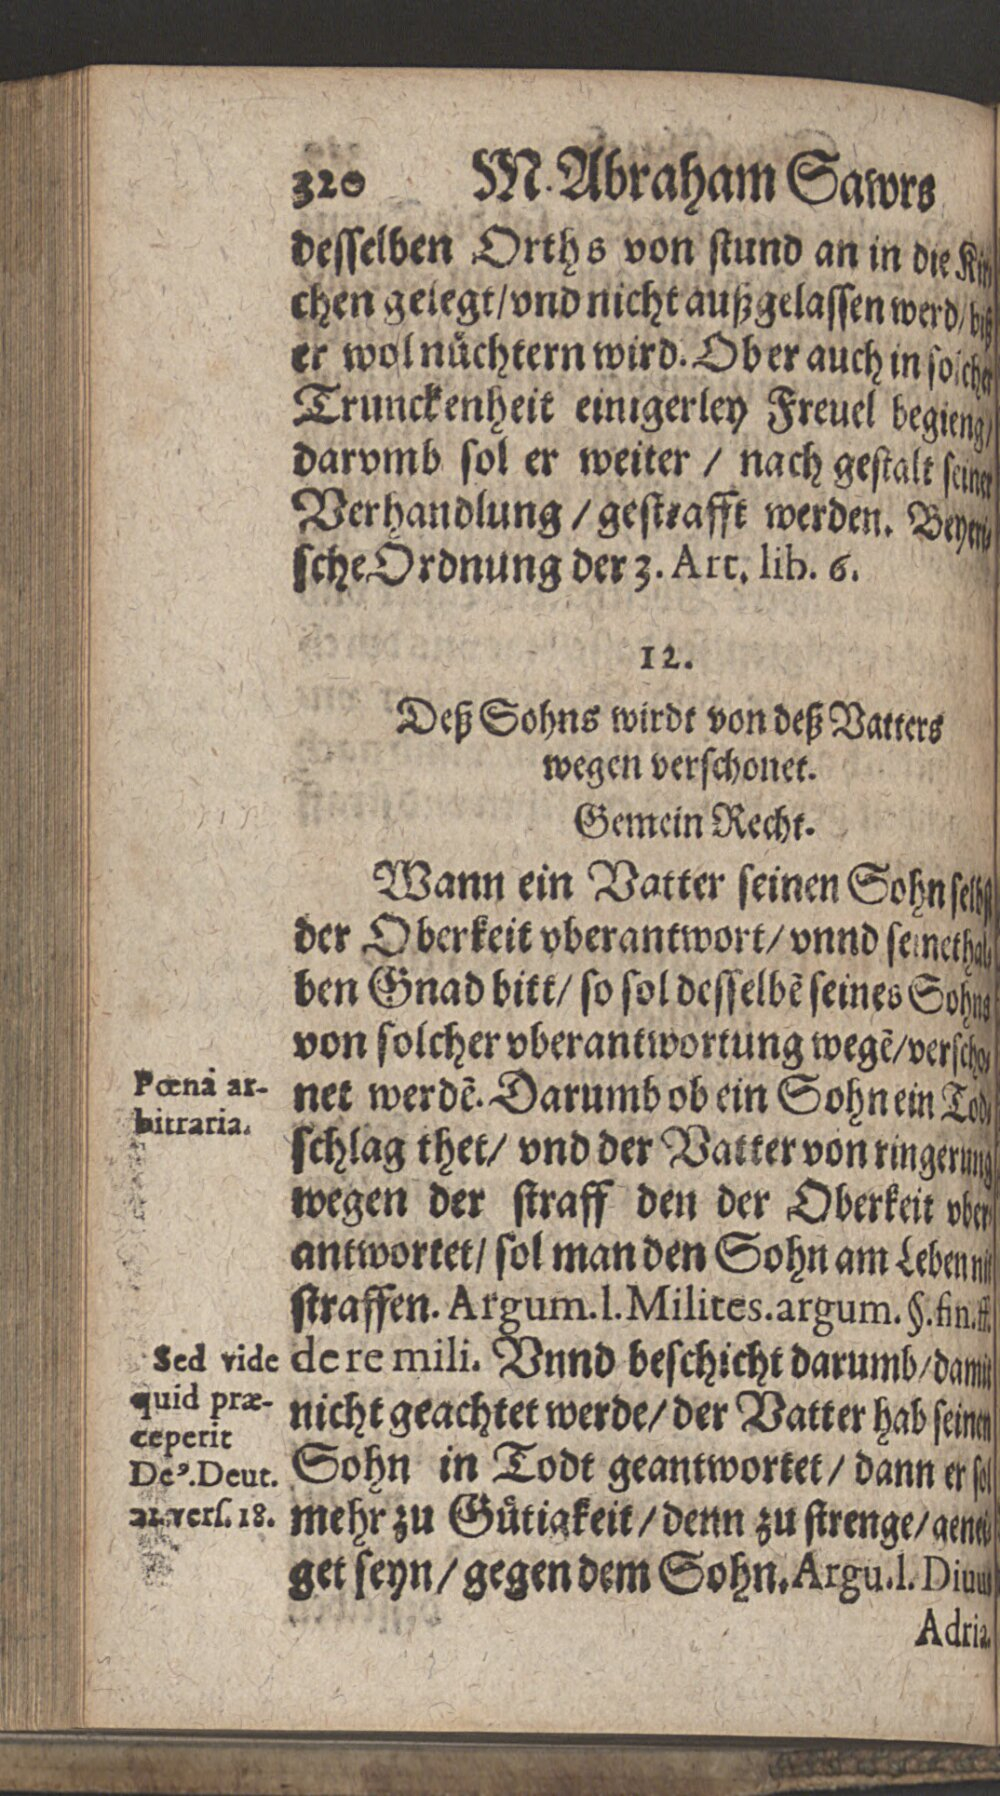 320 M. Abraham Sawrs
desselben Orths von stund an in die Kir
chen gelegt/vnd nicht außgelassen werd/biß
er wol nůchtern wird. Ob er auch in solcher
Trunckenheit einigerley Freuel begieng/
darvmb sol er weiter / nach gestalt seiner
Verhandlung / gestrafft werden. Beyeri-
sche Ordnung der 3. Art. lib. 6.
12.
Deß Sohns wirdt von deß Vatters
wegen verschonet.
Gemein Recht.
Wann ein Vatter seinen Sohn selbst
der Oberkeit vberantwort/ vnnd seinethal-
ben Gnad bitt/ so sol desselbẽ seines Sohns
von solcher vberantwortung wegẽ/verscho-
net werdẽ. Darumb ob ein Sohn ein Tod-
schlag thet/ vnd der Vatter von ringerung
wegen der straff den der Oberkeit vber-
antwortet/ sol man den Sohn am Leben nit
straffen. Argum. l. Milites. argum. §. fin. ff.
de re mili. Vnnd beschicht darumb/damit
nicht geachtet werde/ der Vatter hab seinen
Sohn in Todt geantwortet/ dann er sol
mehr zu Gůtigkeit/denn zu strenge/genei-
get seyn/gegen dem Sohn. Argu. l. Diuus
Adria.
Pœna ar-
bitraria.
Sed vide
quid præ-
ceperit
Deꝰ. Deut.
21. vers. 18.